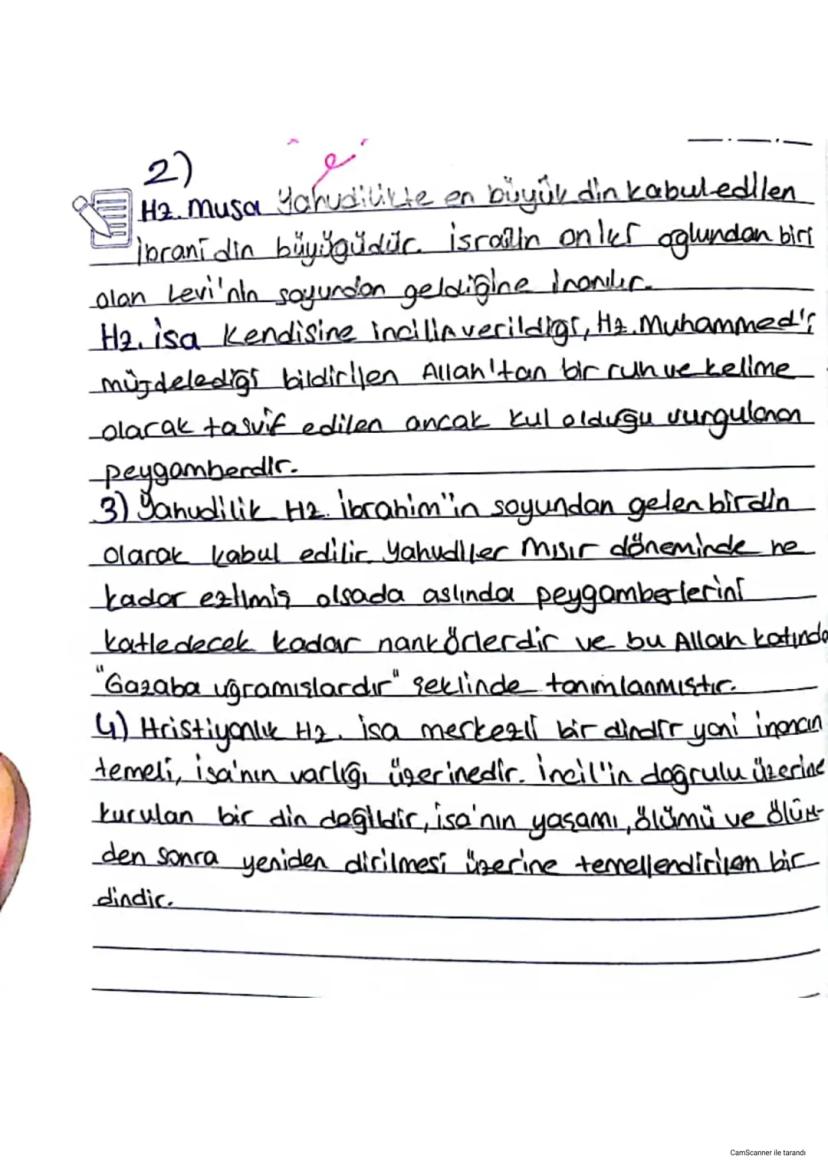 2)
Hz. Musa Yahudilikte en büyük din kabul edilen
İbrani din büyüğüdür. İsrailin oniki oğlundan biri
olan Levi'nin soyundan geldiğine inanılır.
Hz. İsa Kendisine incilin verildiği, Hz. Muhammed'i
müjdelediği bildirilen Allah'tan bir ruh ve kelime
olarak tasvif edilen ancak kul olduğu vurgulanan
peygamberdir.
3) Yahudilik Hz. İbrahim"in soyundan gelen bir din
olarak kabul edilir. Yahudiler Mısır döneminde ne
kadar ezilmiş olsada aslında peygamberlerini
katledecek kadar nankörlerdir ve bu Allah katında
"Gazaba uğramışlardır" şeklinde tanımlanmıştır.
4) Hristiyanlık Hz. İsa merkezli bir dindir yani inancın
temeli, isa'nın varlığı üzerinedir. İncil"in doğrulu üzerine
kurulan bir din değildir, isa'nın yaşamı, ölümü ve ölüm-
den sonra yeniden dirilmesi üzerine temellendirilen bir
dindir.
CamScanner ile tarandı